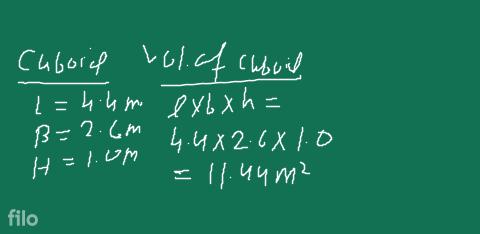 Cuboid Vol. of Cuboid
l = 4.4 m l×b×h =
B = 2.6m 4.4×2.6×1.0
H = 1.0m = 11.44m²
filo